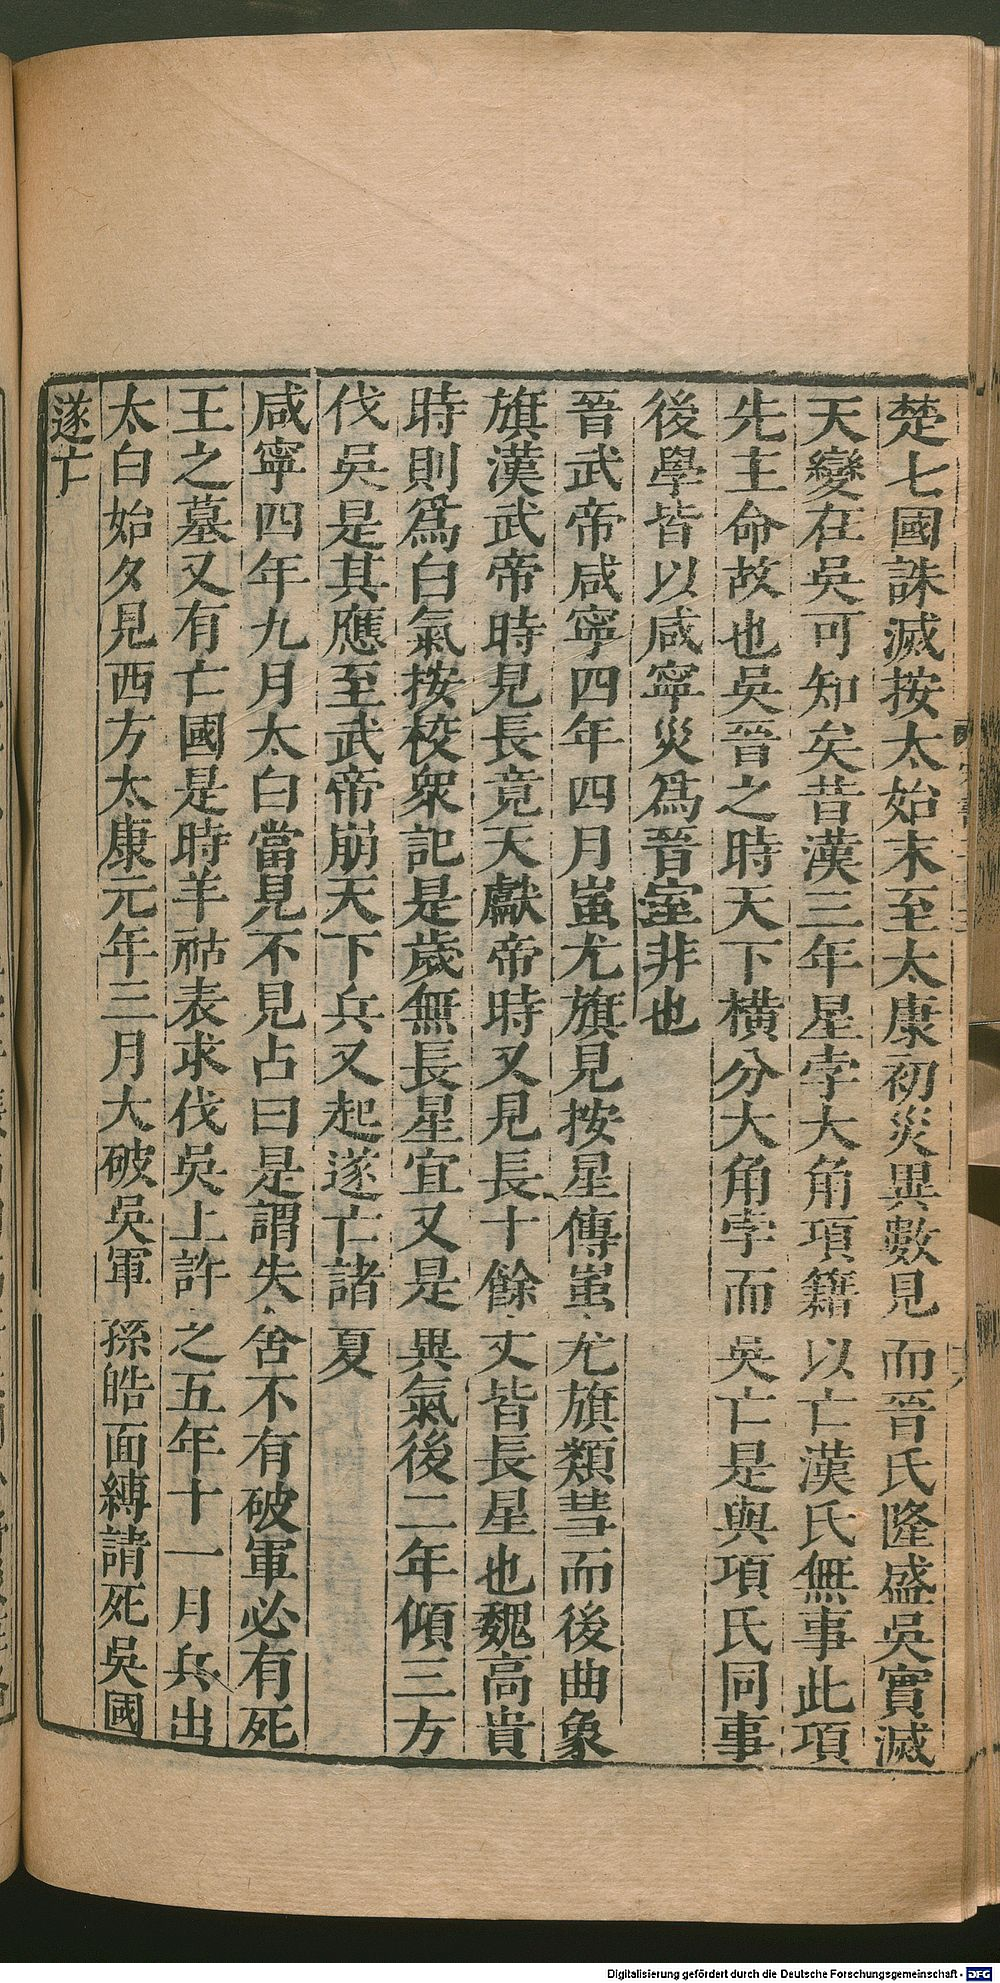 楚七國誅滅按太始末至太康初災異數見而晉氏隆盛吳實滅
天變在吳可知矣昔漢三年星孛大角項籍以亡漢氏無事此項
先主命故也吳晉之時天下橫分大角孛而吳亡是與項氏同事
後學皆以咸寧災為晉室非也
晉武帝咸寧四年四月蚩尤旗見按星傳蚩尤旗類彗而後曲象
旗漢武帝時見長竟天獻帝時又見長十餘丈皆長星也魏高貴
時則為白氣按校衆記是歲無長星宜又是異氣後二年傾三方
伐吳是其應至武帝崩天下兵又起遂亡諸夏
咸寧四年九月太白當見不見占曰是謂失舍不有破軍必有死
王之墓又有亡國是時羊祜表求伐吳上許之五年十一月兵出
太白始夕見西方太康元年三月大破吳軍孫皓面縛請死吳國
遂亡
Digitalisierung gefördert durch die Deutsche Forschungsgemeinschaft - DFG